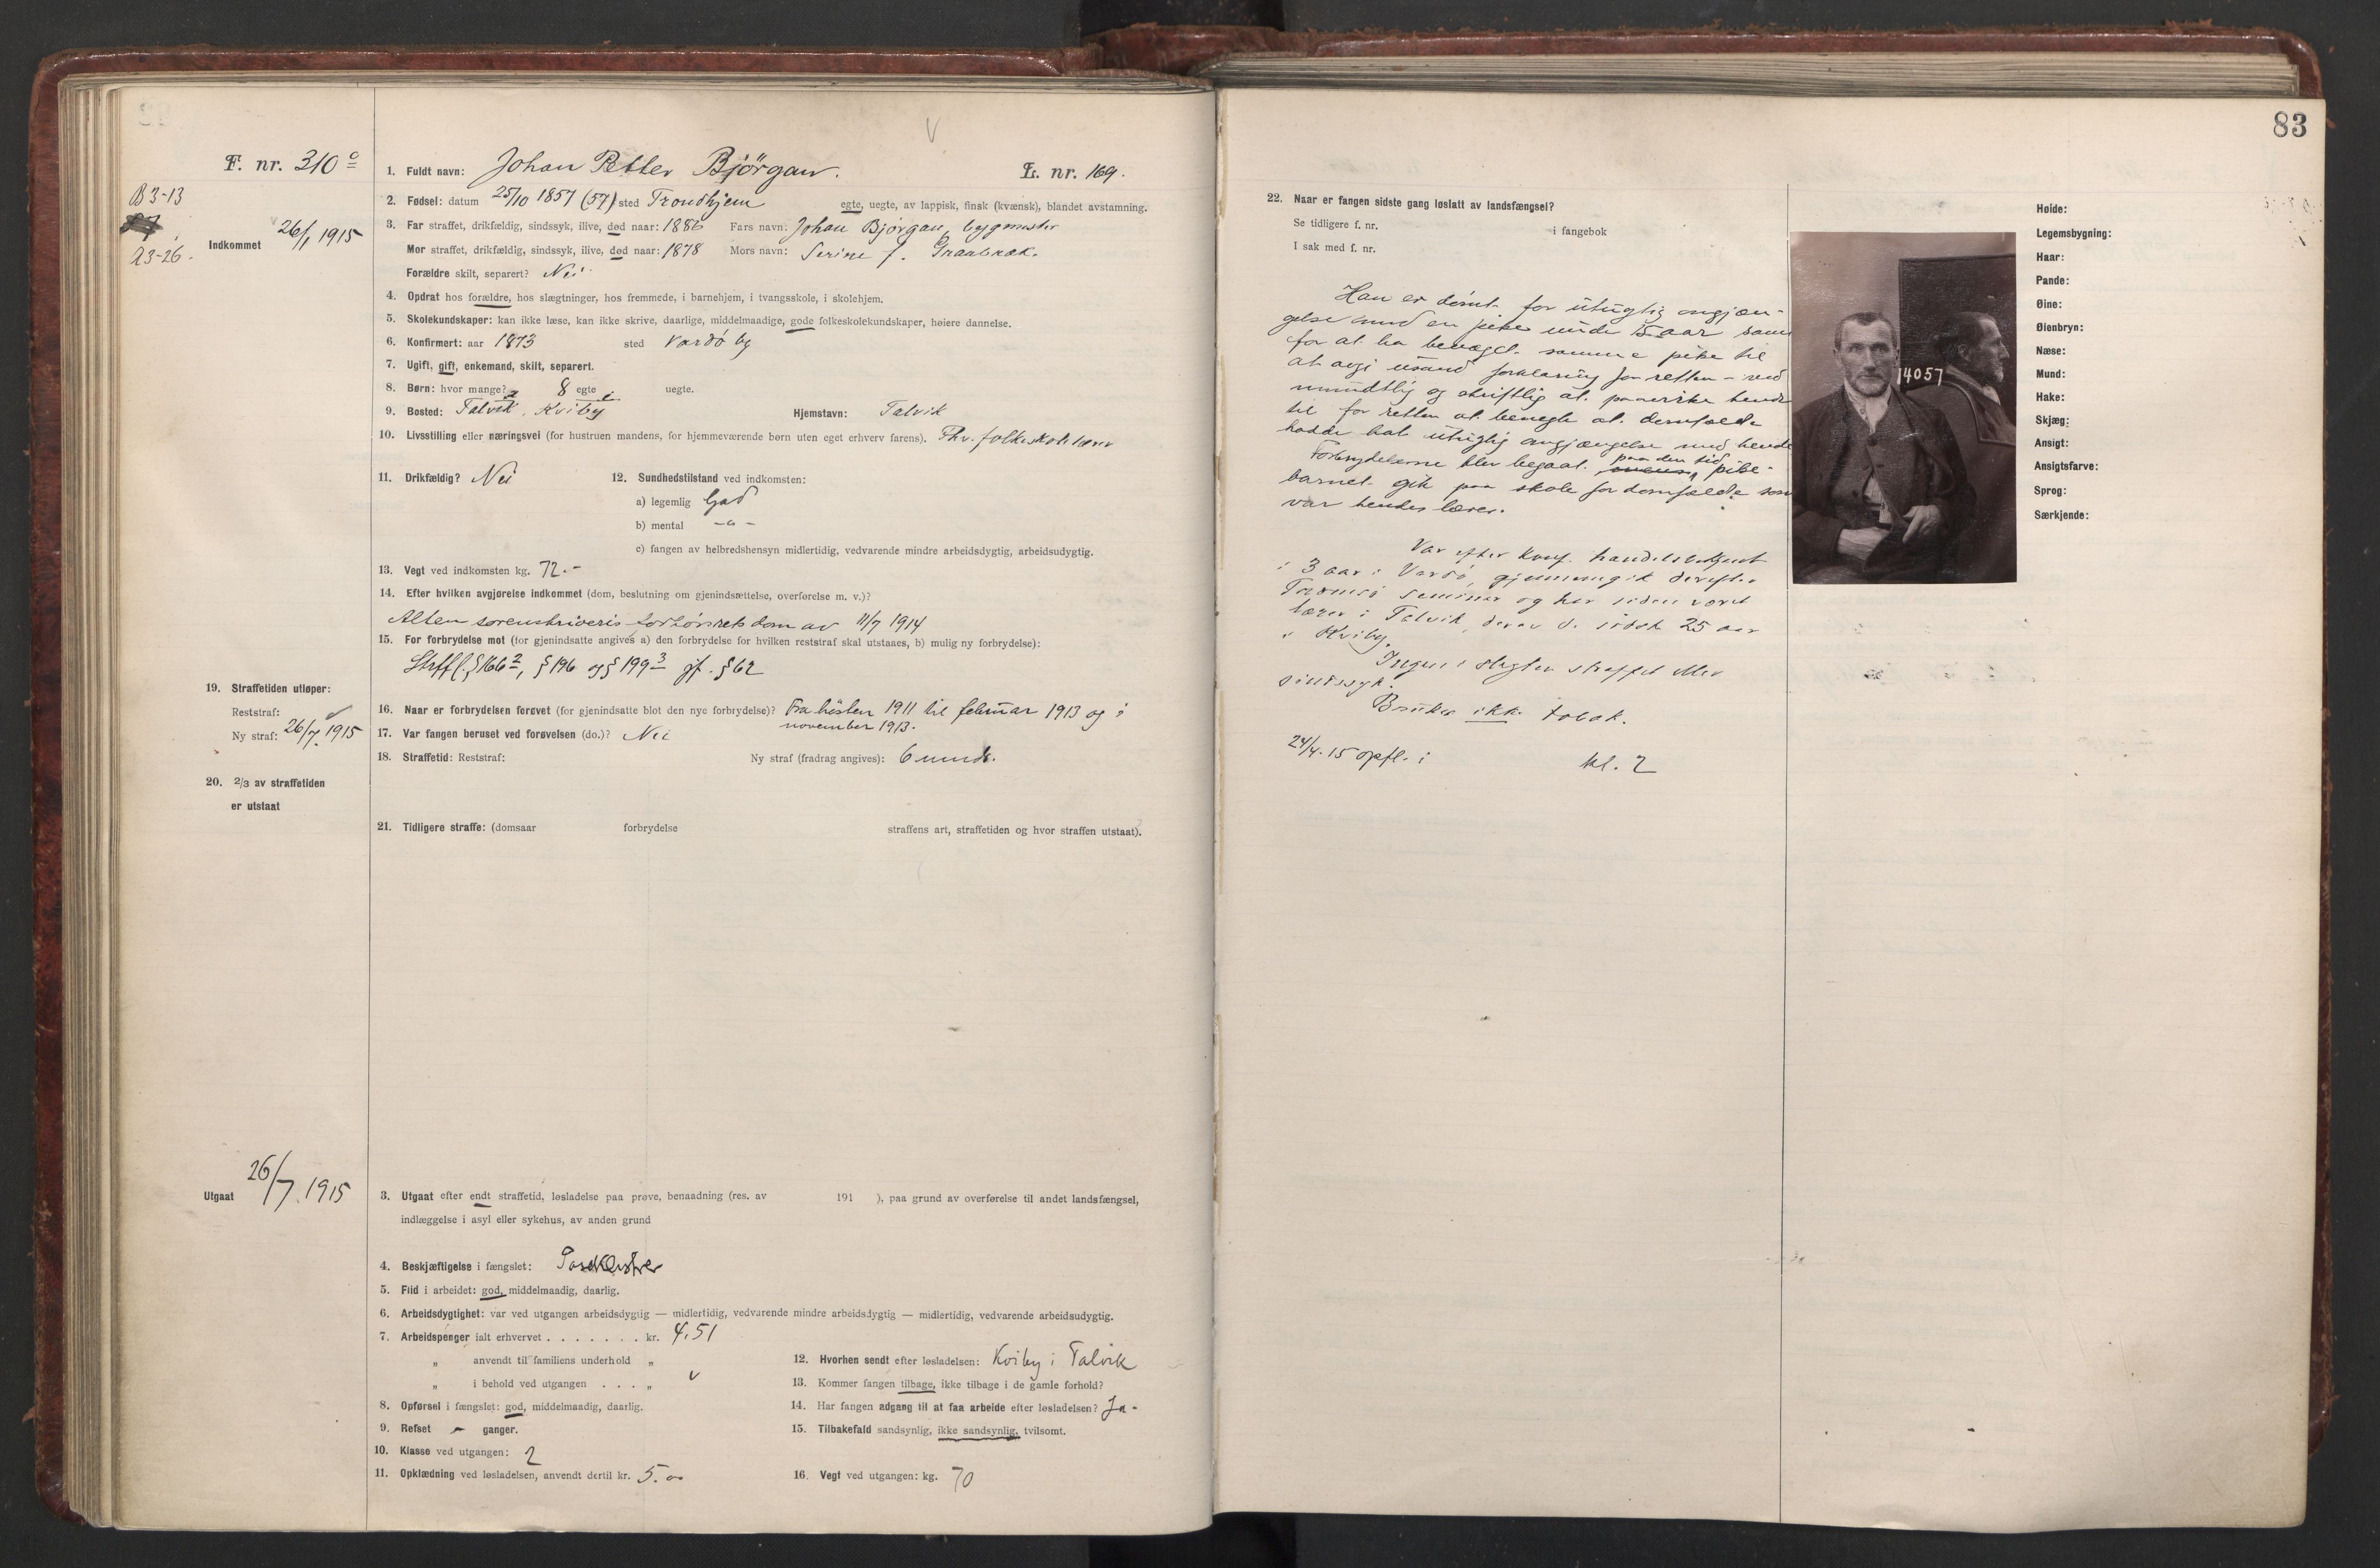 F. nr. 310 c
B 3-13
A 3-26.
Indkommet 26/1 1915
1. Fuldt navn: Johan Petter Björgan. L. nr. 169.
2. Fødsel: datum 25/10 1857 (57) sted Trondhjem egte, uegte, av lappisk, finsk (kvænsk), blandet avstamning.
3. Far straffet, drikfældig, sindssyk, ilive, død naar: 1886 Fars navn: Johan Bjørgan, bygmester
Mor straffet, drikfældig, sindssyk, ilive, død naar: 1878 Mors navn: Serine f. Graabræk.
Forældre skilt, separert? Nei
4. Opdrat hos forældre, hos slægtninger, hos fremmede, i barnehjem, i tvangsskole, i skolehjem.
5. Skolekundskaper: kan ikke læse, kan ikke skrive, daarlige, middelmaadige, gode folkeskolekundskaper, høiere dannelse.
6. Konfirmert: aar 1873 sted Vardö by
7. Ugift, gift, enkemand, skilt, separert.
8. Børn: hvor mange? 8 egte uegte.
9. Bosted: Talvik, Kviby Hjemstavn: Talvik
10. Livsstilling eller næringsvei (for hustruen mandens, for hjemmeværende børn uten eget erhverv farens). Fhv. folkeskolelærer
11. Drikfældig? Nei 12. Sundhedstilstand ved indkomsten:
a) legemlig God
b) mental -"-
c) fangen av helbredshensyn midlertidig, vedvarende mindre arbeidsdygtig, arbeidsudygtig.
13. Vegt ved indkomsten kg. 72.-
14. Efter hvilken avgjørelse indkommet (dom, beslutning om gjenindsættelse, overførelse m. v.)?
Alten sorenskriveris forhörsrets dom av 11/7 1914
15. For forbrydelse mot (for gjenindsatte angives a) den forbrydelse for hvilken reststraf skal utstaaes, b) mulig ny forbrydelse):
Strffl. § 166 2, § 196 og § 199 3 jf. § 62
19. Straffetiden utløper:
Reststraf:
Ny straf: 26/7 1915
16. Naar er forbrydelsen førøvet (for gjenindsatte blot den nye forbrydelse)? Fra hösten 1911 til februar 1913 og i
november 1913.
17. Var fangen beruset ved forøvelsen (do.)? Nei
18. Straffetid: Reststraf: Ny straf (fradrag angives): 6 mndr.
20. 2/3 av straffetiden
er utstaat
21. Tidligere straffe: (domsaar forbrydelse straffens art, straffetiden og hvor straffen utstaat).
Utgaat 26/7. 1915
3. Utgaat efter endt straffetid, løsladelse paa prøve, benaadning (res. av 191 ), paa grund av overførelse til andet landsfængsel,
indlæggelse i asyl eller sykehus, av anden grund
4. Beskjæftigelse i fængslet:
5. Flid i arbeidet: god, middelmaadig, daarlig.
6. Arbeidsdygtighet: var ved utgangen arbeidsdygtig — midlertidig, vedvarende mindre arbeidsdygtig — midlertidig, vedvarende arbeidsudygtig.
7. Arbeidspenger ialt erhvervet . . . . . . . kr. 4.51
„ anvendt til familiens underhold „
„ i behold ved utgangen . . . „
8. Opførsel i fængslet: god, middelmaadig, daarlig.
9. Refset - ganger.
10. Klasse ved utgangen: 2
11. Opklædning ved løsladelsen, anvendt dertil kr. 5.00
12. Hvorhen sendt efter løsladelsen: Kviby i Talvik
13. Kommer fangen tilbage, ikke tilbage i de gamle forhold?
14. Har fangen adgang til at faa arbeide efter løsladelsen? Ja-
15. Tilbakefald sandsynlig, ikke sandsynlig, tvilsomt.
16. Vegt ved utgangen: kg. 70
83
22. Naar er fangen sidste gang løslatt av landsfængsel?
Se tidligere f. nr. i fangebok
I sak med f. nr.
Han er dömt for utugtig omgjæn-
gelse med en pike under 15 aar samt
for at ha bevæget samme pike til
at avgi usand forklaring for retten - ved
mundtlig og skriftlig at paavirke hende
til for retten at benegte at domfældte
hadde hat utugtig omgjængelse med hende
Forbrydelserne blev begaat paa den tid pike-
barnet gik paa skole for domfældte som
var hendes lærer.
Var efter konf. handelsbetjent
i 3 aar i Vardö, gjennemgik derefter
Tromsö seminar og har siden været
lærer i Talvik, derav de sidste 25 aar
i Kviby.
Ingen i slegten straffet eller
sindssyk.
Bruker ikke tobak.
24/4.15 opfl. i kl. 2
14057
Høide:
Legemsbygning:
Haar:
Pande:
Øine:
Øienbryn:
Næse:
Mund:
Hake:
Skjæg:
Ansigt:
Ansigtsfarve:
Sprog:
Særkjende: